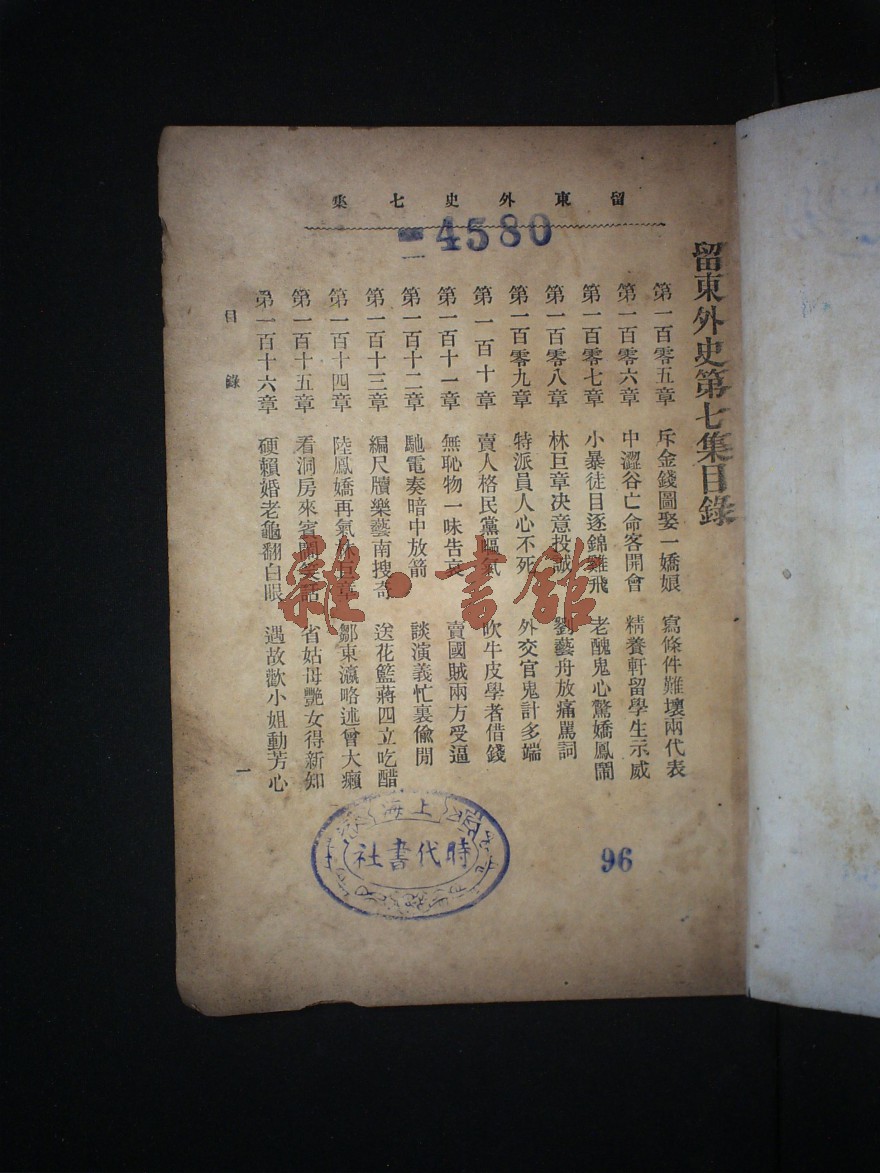 留東外史七集
4580
留東外史第七集目錄
第一百零五章 斥金錢圖娶一嬌娘 寫條件難壞兩代表
第一百零六章 中澀谷亡命客開會 精養軒留學生示威
第一百零七章 小暴徒目逐錦雞飛 老醜鬼心驚嬌鳳鬧
第一百零八章 林巨章决意投誠 劉藝舟放痛罵詞
第一百零九章 特派員人心不死 外交官鬼計多端
第一百十章 賣人格民黨嘔氣 吹牛皮學者借錢
第一百十一章 無恥物一味告哀 賣國賊兩方受逼
第一百十二章 馳電奏暗中放箭 談演義忙裏偷閒
第一百十三章 編尺牘樂藝南搜奇 送花籃蔣四立吃醋
第一百十四章 陸鳳嬌再氣林巨章 鄒東瀛略述曾大癩
第一百十五章 看洞房來賓鬧笑話 省姑母艷女得新知
第一百十六章 硬賴婚老龜翻白眼 遇故歡小姐動芳心
目錄
一
雜·書館
上海
時代書社
96